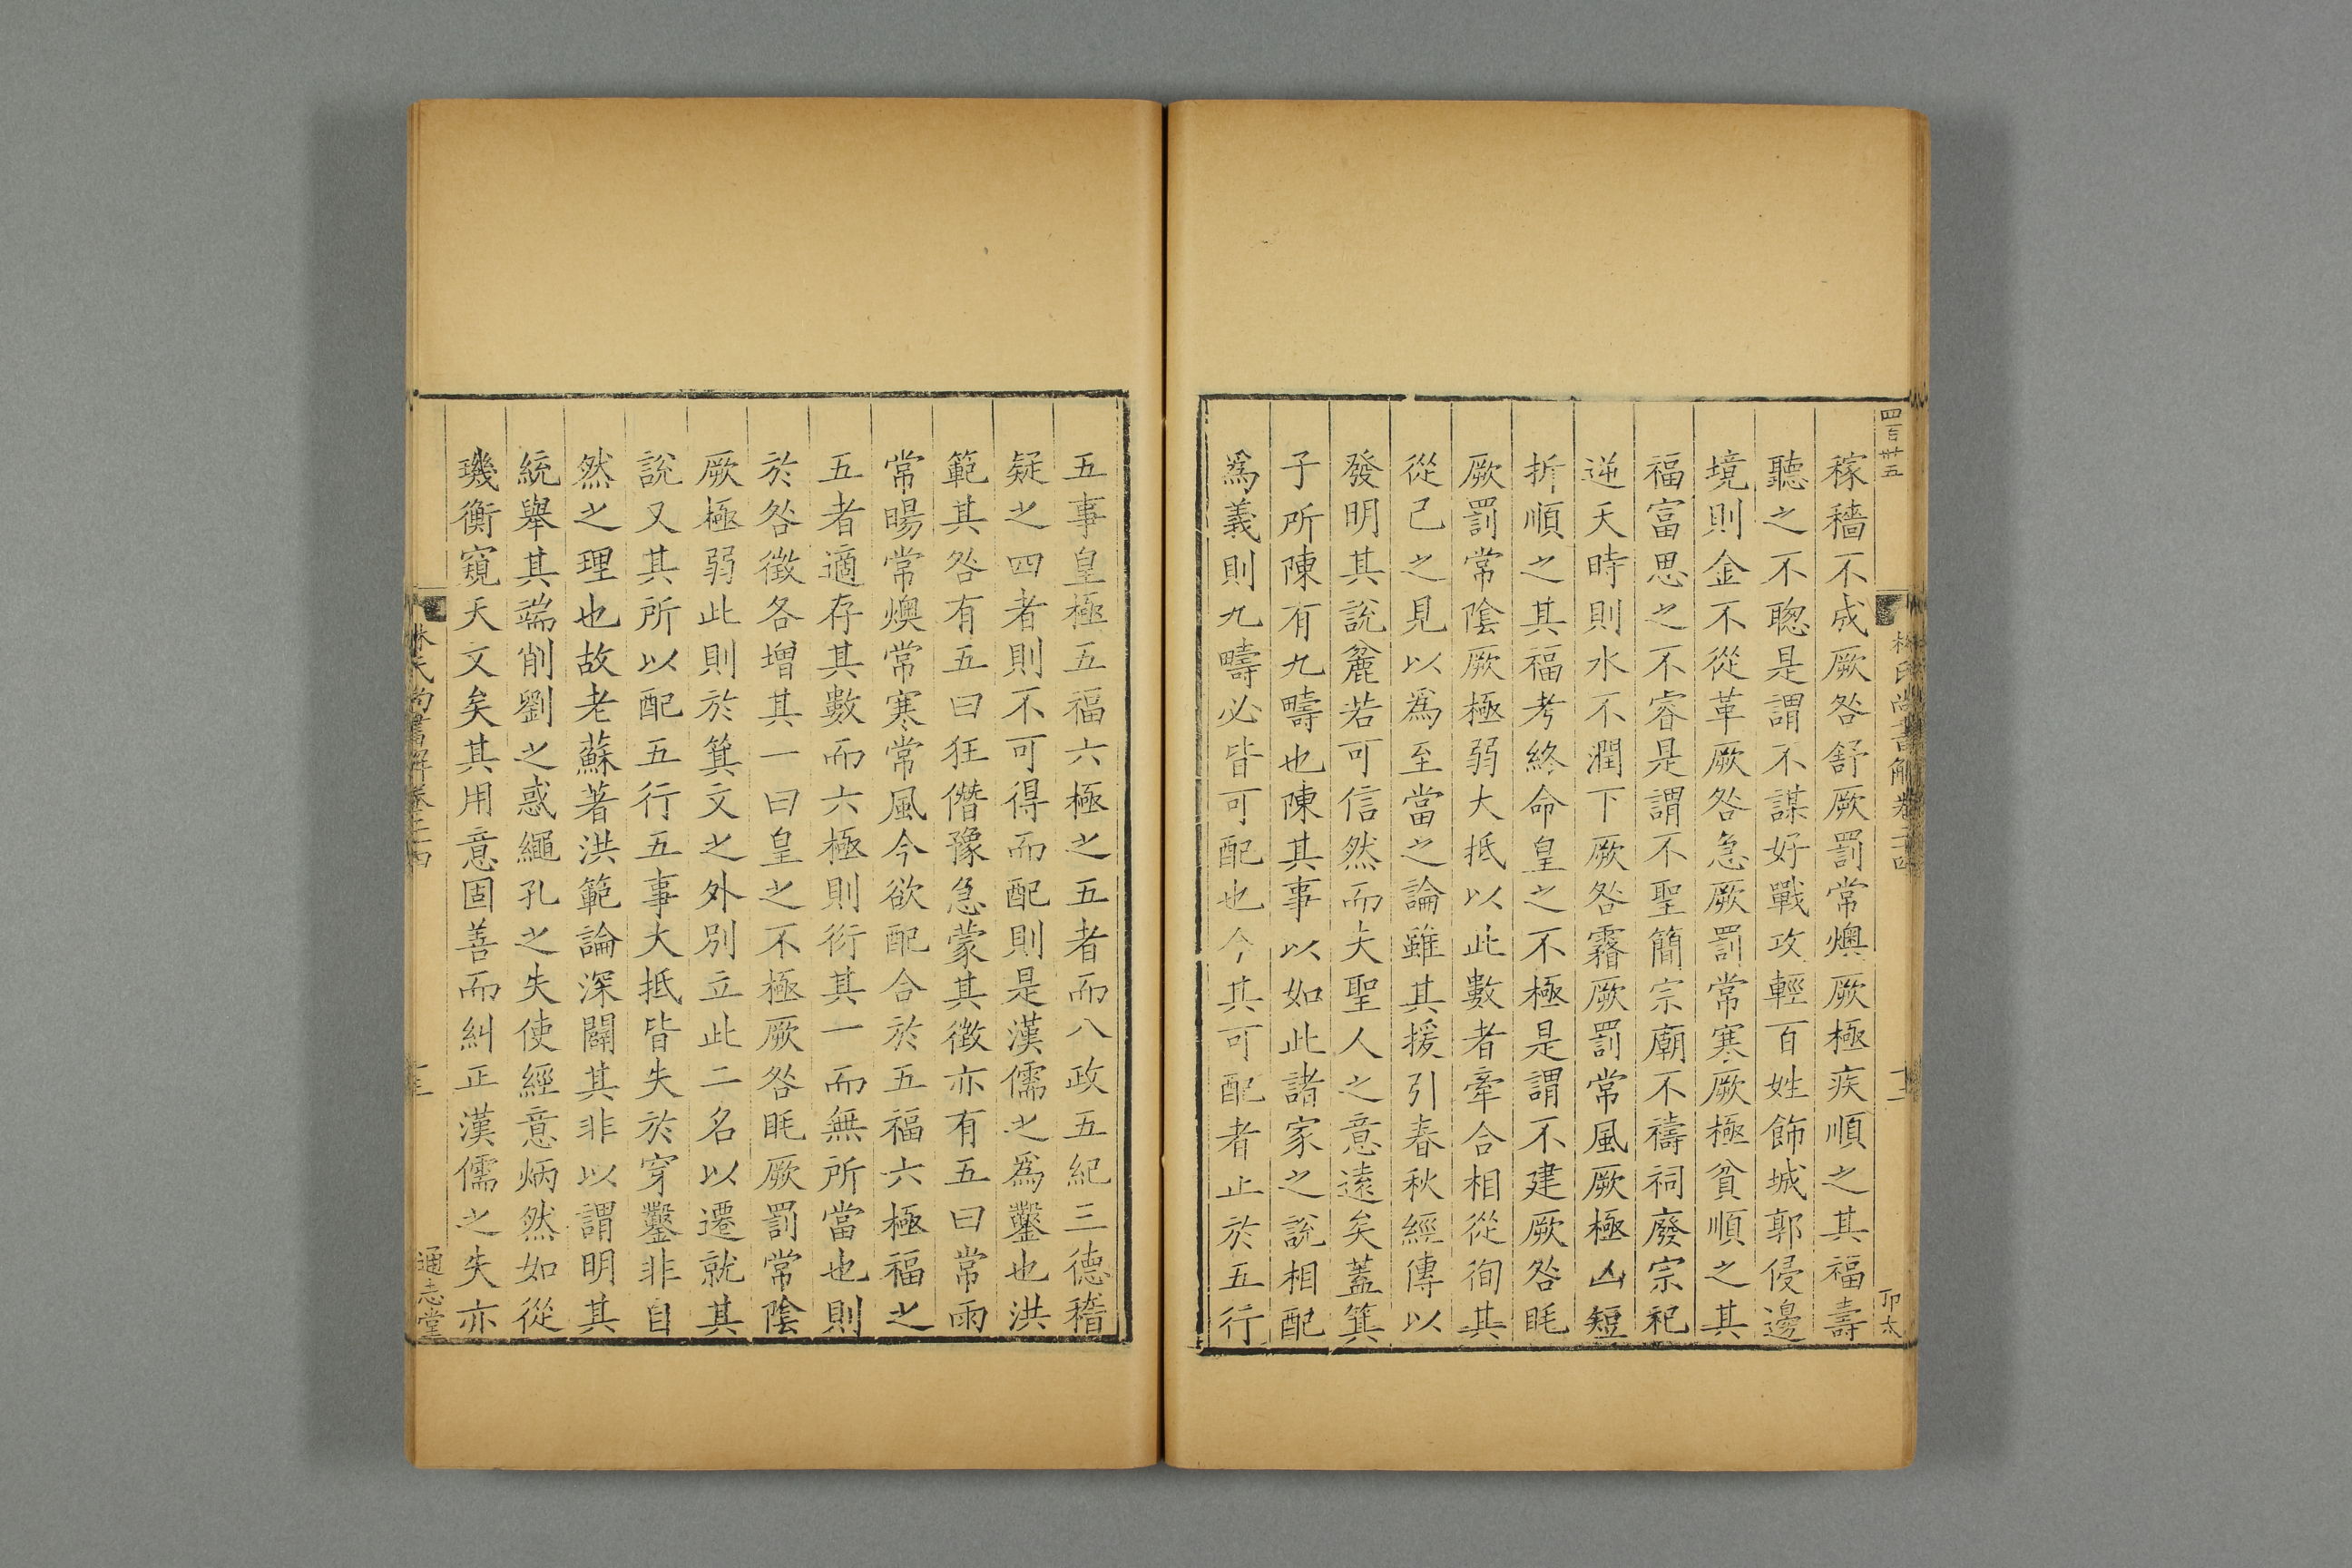 稼穡不成厥咎舒厥罰常燠厥極疾順之其福壽
聽之不聰是謂不謀好戰攻輕百姓飾城郭侵邊
境則金不從革厥咎急厥罰常寒厥極貧順之其
福富思之不睿是謂不聖簡宗廟不禱祠廢宗祀
逆天時則水不潤下厥咎霿厥罰常風厥極凶短
折順之其福考終命皇之不極是謂不建厥咎眊
厥罰常陰厥極弱大抵以此數者牽合相從徇其
從己之見以爲至當之論雖其援引春秋經傳以
發明其說麄若可信然而夫聖人之意遠矣蓋箕
子所陳有九疇也陳其事以如此諸家之說相配
爲義則九疇必皆可配也今其可配者止於五行
五事皇極五福六極之五者而八政五紀三德稽
疑之四者則不可得而配則是漢儒之爲鑿也洪
範其咎有五曰狂僭豫急蒙其徵亦有五曰常雨
常暘常燠常寒常風今欲配合於五福六極福之
五者適存其數而六極則衍其一而無所當也則
於咎徵各增其一曰皇之不極厥咎眊厥罰常陰
厥極弱此則於箕文之外別立此二名以遷就其
說又其所以配五行五事大抵皆失於穿鑿非自
然之理也故老蘇著洪範論深闢其非以謂明其
統舉其端削劉之惑繩孔之失使經意炳然如從
璣衡窺天文矣其用意固善而糾正漢儒之失亦
林氏尚書解卷二十四
通志堂